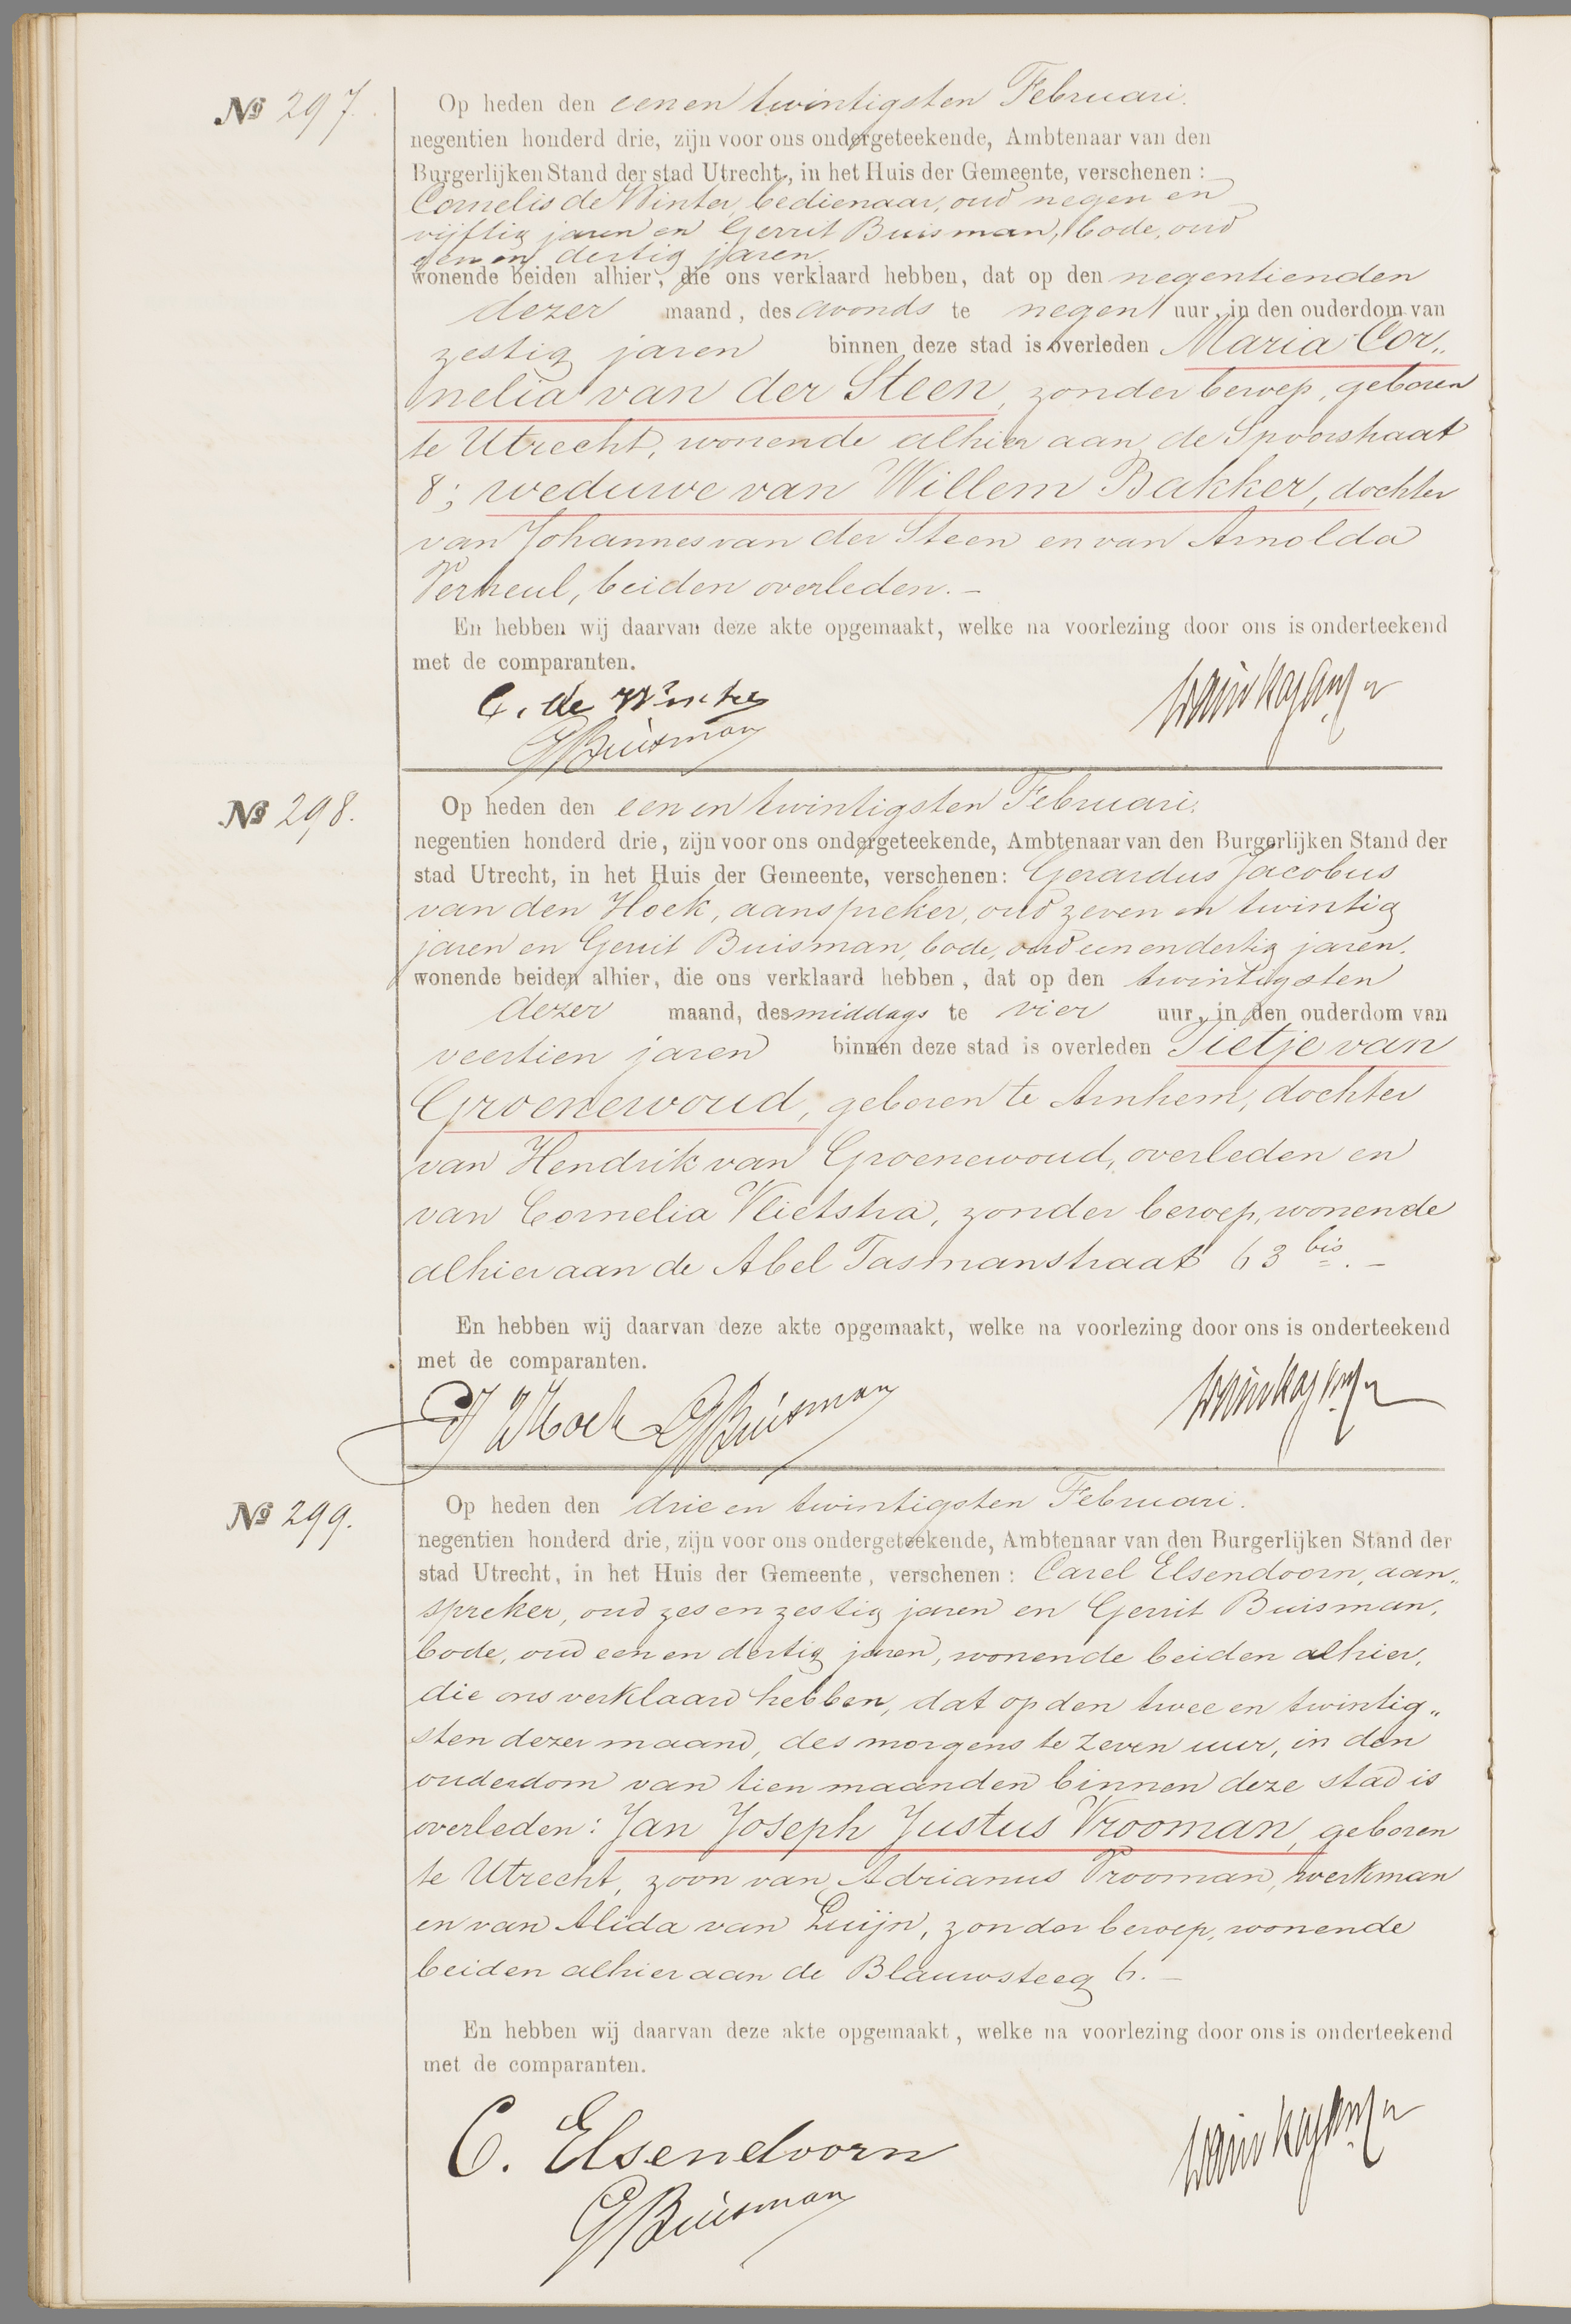 № 297.
Op heden den eenen twintigsten Februari.
negentien honderd drie, zijn voor ons ondergeteekende, Ambtenaar van den
Burgerlijken Stand der stad Utrecht, in het Huis der Gemeente, verschenen:
Cornelis de Winter, bedienaar, oud negen en
vijftig jaren en Gerrit Buisman, bode, oud
een en dertig jaren.
wonende beiden alhier, die ons verklaard hebben, dat op den negentienden
dezer maand, des avonds te negen uur, in den ouderdom van
zestig jaren binnen deze stad is overleden Maria Cor„
nelia van der Steen, zonder beroep, geboren
te Utrecht, wonende alhier aan de Spoorstraat
8; weduwe van Willem Bakker, dochter
van Johannes van der Steen en van Arnolda
Verheul, beiden overleden. -
En hebben wij daarvan deze akte opgemaakt, welke na voorlezing door ons is onderteekend
met de comparanten.
C. de Winter
GBuisman
№ 298.
Op heden den een en twintigsten Februari.
negentien honderd drie, zijn voor ons ondergeteekende, Ambtenaar van den Burgerlijken Stand der
stad Utrecht, in het Huis der Gemeente, verschenen: Gerardus Jacobus
van den Hoek, aanspreker, oud zeven en twintig
jaren en Gerrit Buisman, bode, oud een en dertig jaren.
wonende beiden alhier, die ons verklaard hebben, dat op den twintigsten
dezer maand, des middags te vier uur, in den ouderdom van
veertien jaren binnen deze stad is overleden Tietje van
Groenewoud, geboren te Arnhem, dochter
van Hendrik van Groenewoud, overleden en
van Cornelia Vlietstra, zonder beroep, wonende
alhier aan de Abel Tasmanstraat 63 bis. -
En hebben wij daarvan deze akte opgemaakt, welke na voorlezing door ons is onderteekend
met de comparanten.
GJ vd Hoek GBuisman
№ 299.
Op heden den drie en twintigsten Februari.
negentien honderd drie, zijn voor ons ondergeteekende, Ambtenaar van den Burgerlijken Stand der
stad Utrecht, in het Huis der Gemeente, verschenen: Carel Elsendoorn, aan„
spreker, oud zes en zestig jaren en Gerrit Buisman,
bode, oud een en dertig jaren, wonende beiden alhier,
die ons verklaard hebben, dat op den twee en twintig„
sten dezer maand, des morgens te zeven uur, in den
ouderdom van tien maanden binnen deze stad is
overleden: Jan Joseph Justus Vrooman, geboren
te Utrecht, zoon van Adrianus Vrooman, werkman
en van Alida van Luijn, zonder beroep, wonende
beiden alhier aan de Blauwsteeg 6. -
En hebben wij daarvan deze akte opgemaakt, welke na voorlezing door ons is onderteekend
met de comparanten.
C. Elsendoorn
GBuisman